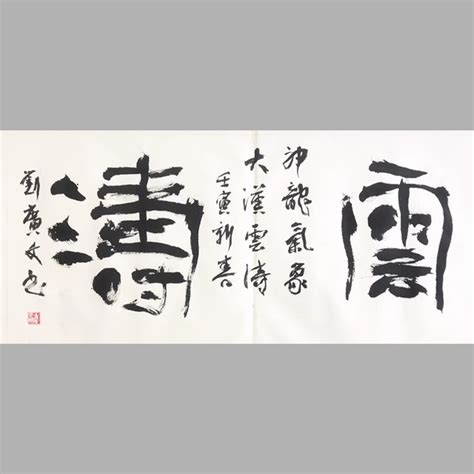 雲
神龍氣象
大漢雲濤
壬寅新春
濤
劉廣文書